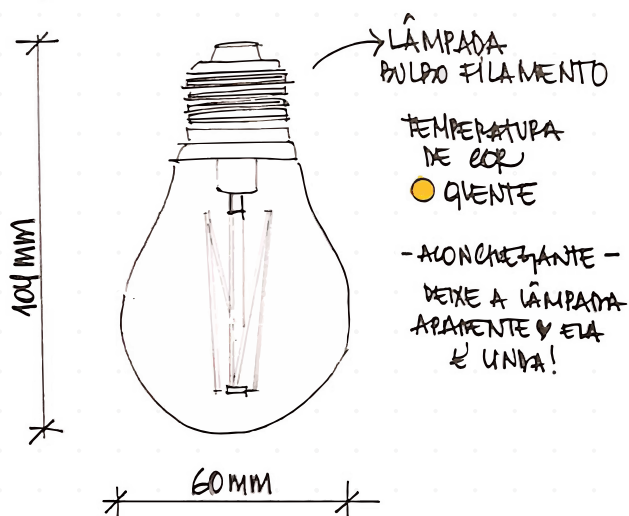 LÂMPADA
BULBO FILAMENTO
TEMPERATURA
DE COR
QUENTE
- ACONCHEGANTE -
DEIXE A LÂMPADA
APARENTE ♥ ELA
É LINDA!
104 MM
60 MM